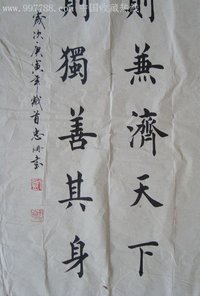 www.997788.com 中国收藏热线
則兼濟天下
則獨善其身
歲次庚寅年歲首忠